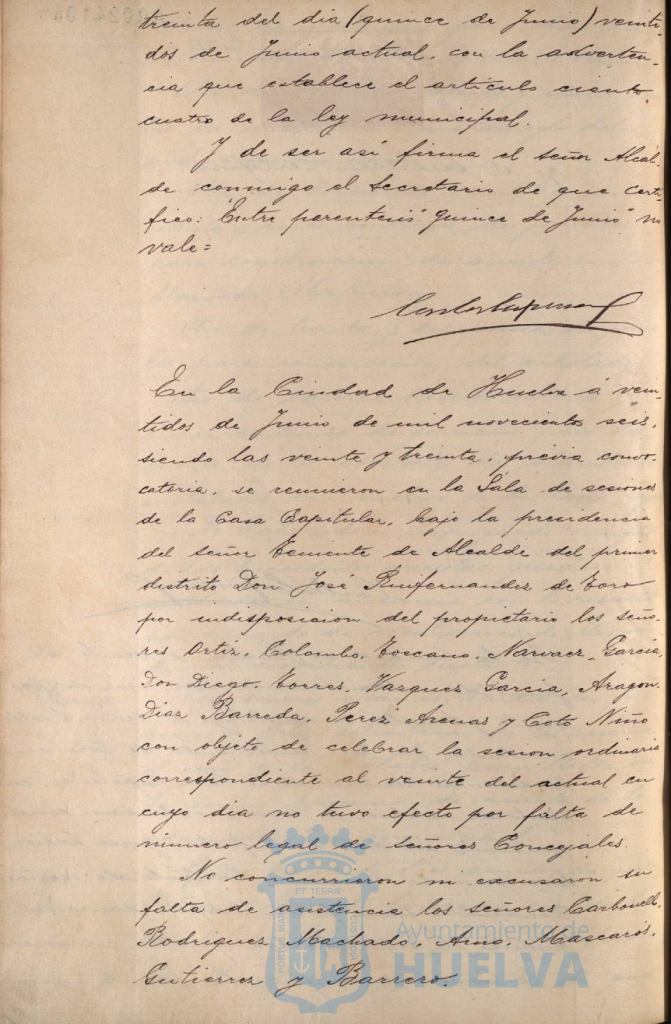 treinta del dia (quince de Junio) veinti-
dos de Junio actual, con la adverten-
cia que establece el articulo ciento
cuatro de la ley municipal.
Y de ser asi firma el señor Alcal-
de conmigo el Secretario de que certi-
fico: "Entre parentesis" quince de Junio" no
vale=
En la Ciudad de Huelva á vein-
tidos de Junio de mil novecientos seis,
siendo las veinte y treinta, prévia convo-
catoria, se reunieron en la Sala de sesiones
de la Casa Capitular, bajo la presidencia
del señor Teniente de Alcalde del primer
distrito Don José Ruifernandez de Toro
por indisposicion del propietario los seño-
res Ortiz, Colombo, Toscano, Narvaez, García,
Don Diego, Torres, Vazquez García, Aragon,
Diaz Barreda, Perez Arenas y Coto Niño
con objeto de celebrar la sesion ordinaria
correspondiente al veinte del actual en
cuyo dia no tuvo efecto por falta de
número legal de señores Concejales.
No concurrieron ni excusaron su
falta de asistencia los señores Carbonell,
Rodriguez Machado, Amo, Mascarós,
Gutierrez y Barrero.
Ayuntamiento de
HUELVA
ET TERRA